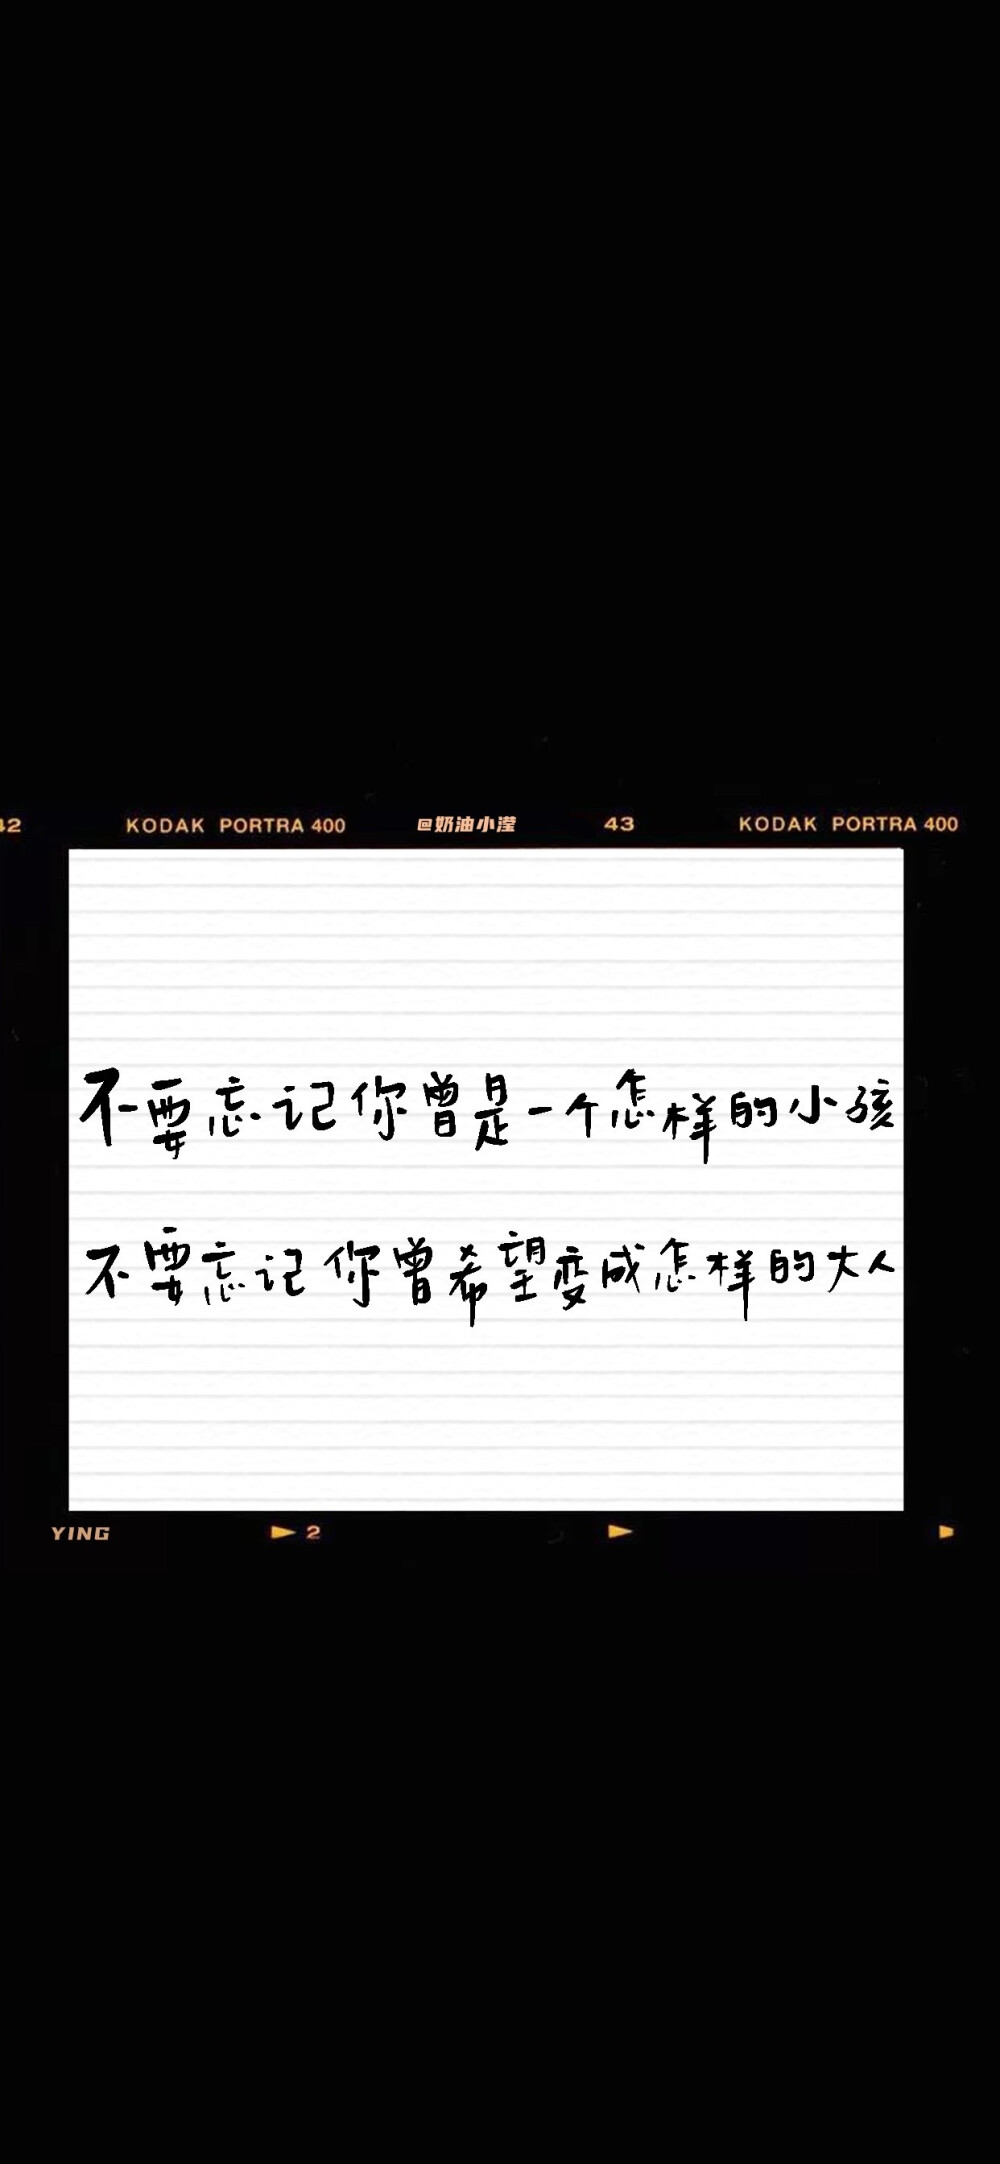 42 KODAK PORTRA 400 @奶油小滢 43 KODAK PORTRA 400
不要忘记你曾是一个怎样的小孩
不要忘记你曾希望变成怎样的大人
YING 2